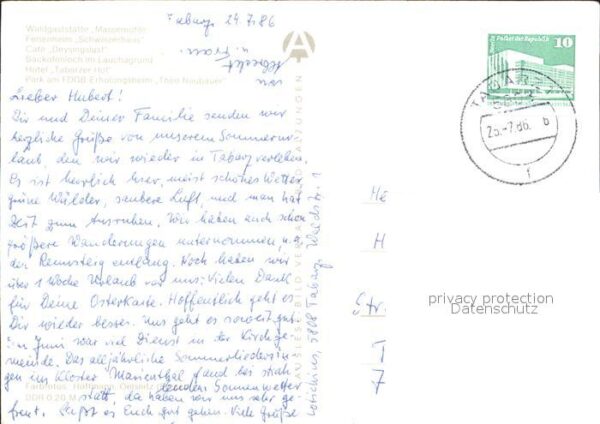 Tabarz, 24.7.86
Windgaststätte „Massemühle“
Ferienheim „Schweizerhaus“
Café „Deysingslust“
Backofenloch im Lauchagrund
Hotel „Tabarzer Hof“
Park am FDGB-Erholungsheim „Theo Neubauer“
Lieber Hubert!
Dir und Deiner Familie senden wir
herzliche Grüße von unserem Sommerur-
laub, den wir wieder in Tabarz verleben.
Es ist herrlich hier, meist schönes Wetter
grüne Wälder, saubere Luft, und man hat
Zeit zum Ausruhen. Wir haben auch schon
größere Wanderungen unternommen, u.a.
den Rennsteig entlang. Noch haben wir
über 1 Woche Urlaub vor uns. Vielen Dank
für Deine Osterkarte. Hoffentlich geht es
Dir wieder besser. Uns geht es soweit gut.
Im Juni war viel Dienst in der Kirchge-
meinde. Das alljährliche Sommerliedersin-
gen im Kloster Marienthal fand bei strah-
lendem Sonnenwetter
statt, da haben wir uns sehr ge-
freut. Laßt es Euch gut gehen. Viele Grüße
von
Albrecht
u. Frau
5808 Tabarz, Waldstr. 1
AUSLESE-BILD-VERLAG BAD SALZUNGEN
A
DDR 0,20 M
Berlin Palast der Republik
10
TABARZ
5808
25.-7.86
b
1
He
H
Str
T
7
privacy protection
Datenschutz